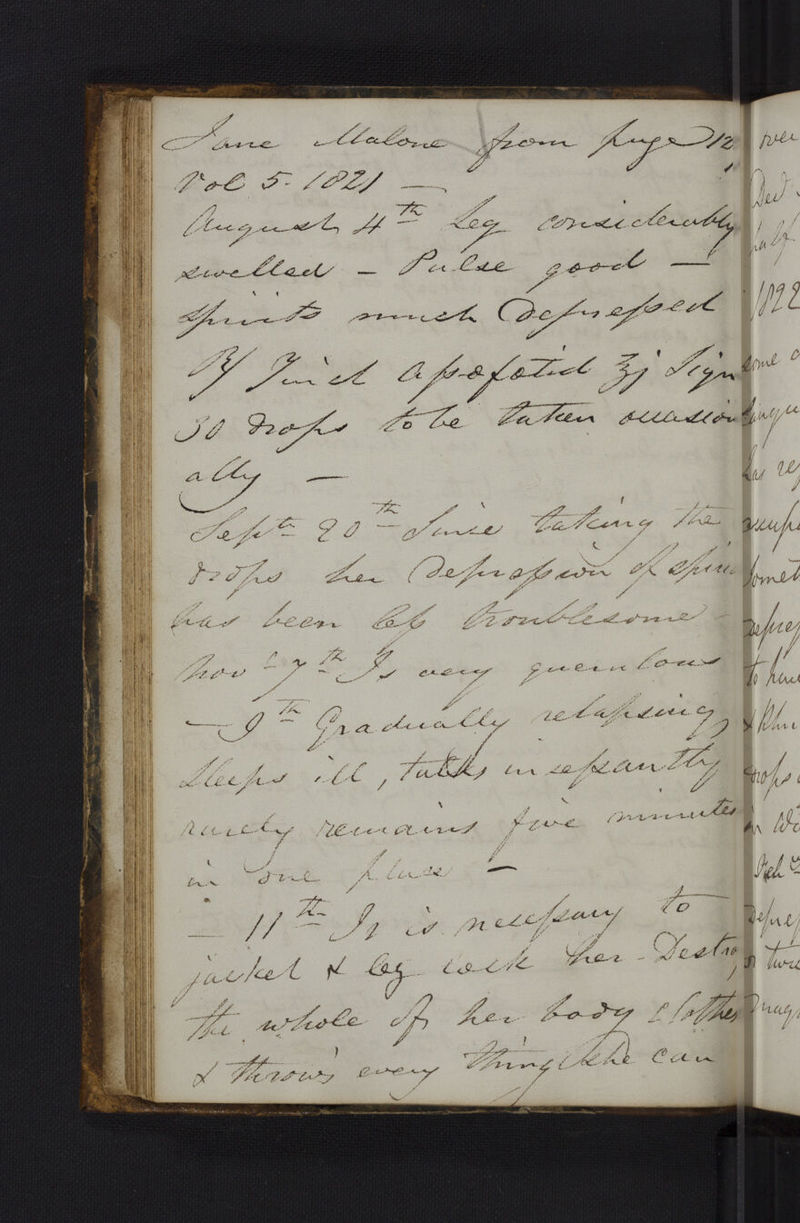 Jane Malone from page 12
Vol 5. 1821 —
August 4th Leg considerably
swelled – Pulse good —
spirits much depressed
R/ Tinct Assafotid ʒj Sign
30 drops to be taken occasion
ally —
Septr 20th Since taking the
drops her depression of spirits
has been less troublesome –
Novr 7th Is very querulous
— 9th Gradually relapsing,
sleeps ill, talks incessantly
rarely remains five minutes
in one place –
— 11th It is necessary to
jacket & leg lock her – Destroys
the whole of her body clothes
& throws every thing she can
over
Decr
half
1822
some
has
to
Feb